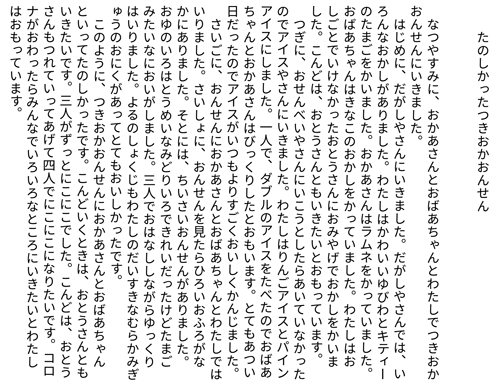 たのしかったつきおかおんせん
なつやすみに、おかあさんとおばあちゃんとわたしでつきおか
おんせんにいきました。
はじめに、だがしやさんにいきました。だがしやさんでは、い
ろんなおかしがありました。わたしはかわいいゆびわとキティー
のたまごをかいました。おかあさんはラムネをかっていました。
おばあちゃんはきなこのおかしをかっていました。わたしはお
しごとでいけなかったおとうさんにおみやげでおかしをかいま
した。こんどは、おとうさんともいきたいとおもっています。
つぎに、おせんべいやさんにいこうとしたらあいていなかった
のでアイスやさんにいきました。わたしはりんごアイスとパイン
アイスにしました。一人で、ダブルのアイスをたべたのでおばあ
ちゃんとおかあさんはびっくりしたとおもいます。とてもあつい
日だったのでアイスがいつもよりすごくおいしくかんじました。
さいごに、おんせんにおかあさんとおばあちゃんとわたしでは
いりました。さいしょに、おんせんを見たらひろいおふろがな
かにありました。そとには、ちいさいおんせんがありました。
おゆのいろはとうめいなみどりいろできれいだったけどたまご
みたいなにおいがしました。三人でおはなししながらゆっくり
はいりました。よるのしょくじもわたしのだいすきなむらかみぎ
ゅうのおにくがあってとてもおいしかったです。
このように、つきおかおんせんにおかあさんとおばあちゃん
といってたのしかったです。こんどいくときは、おとうさんとも
いきたいです。三人がずっとにこにこでした。こんどは、おとう
さんもつれていってあげて四人でにこにこになりたいです。コロ
ナがおわったらみんなでいろいろなところにいきたいとわたし
はおもっています。